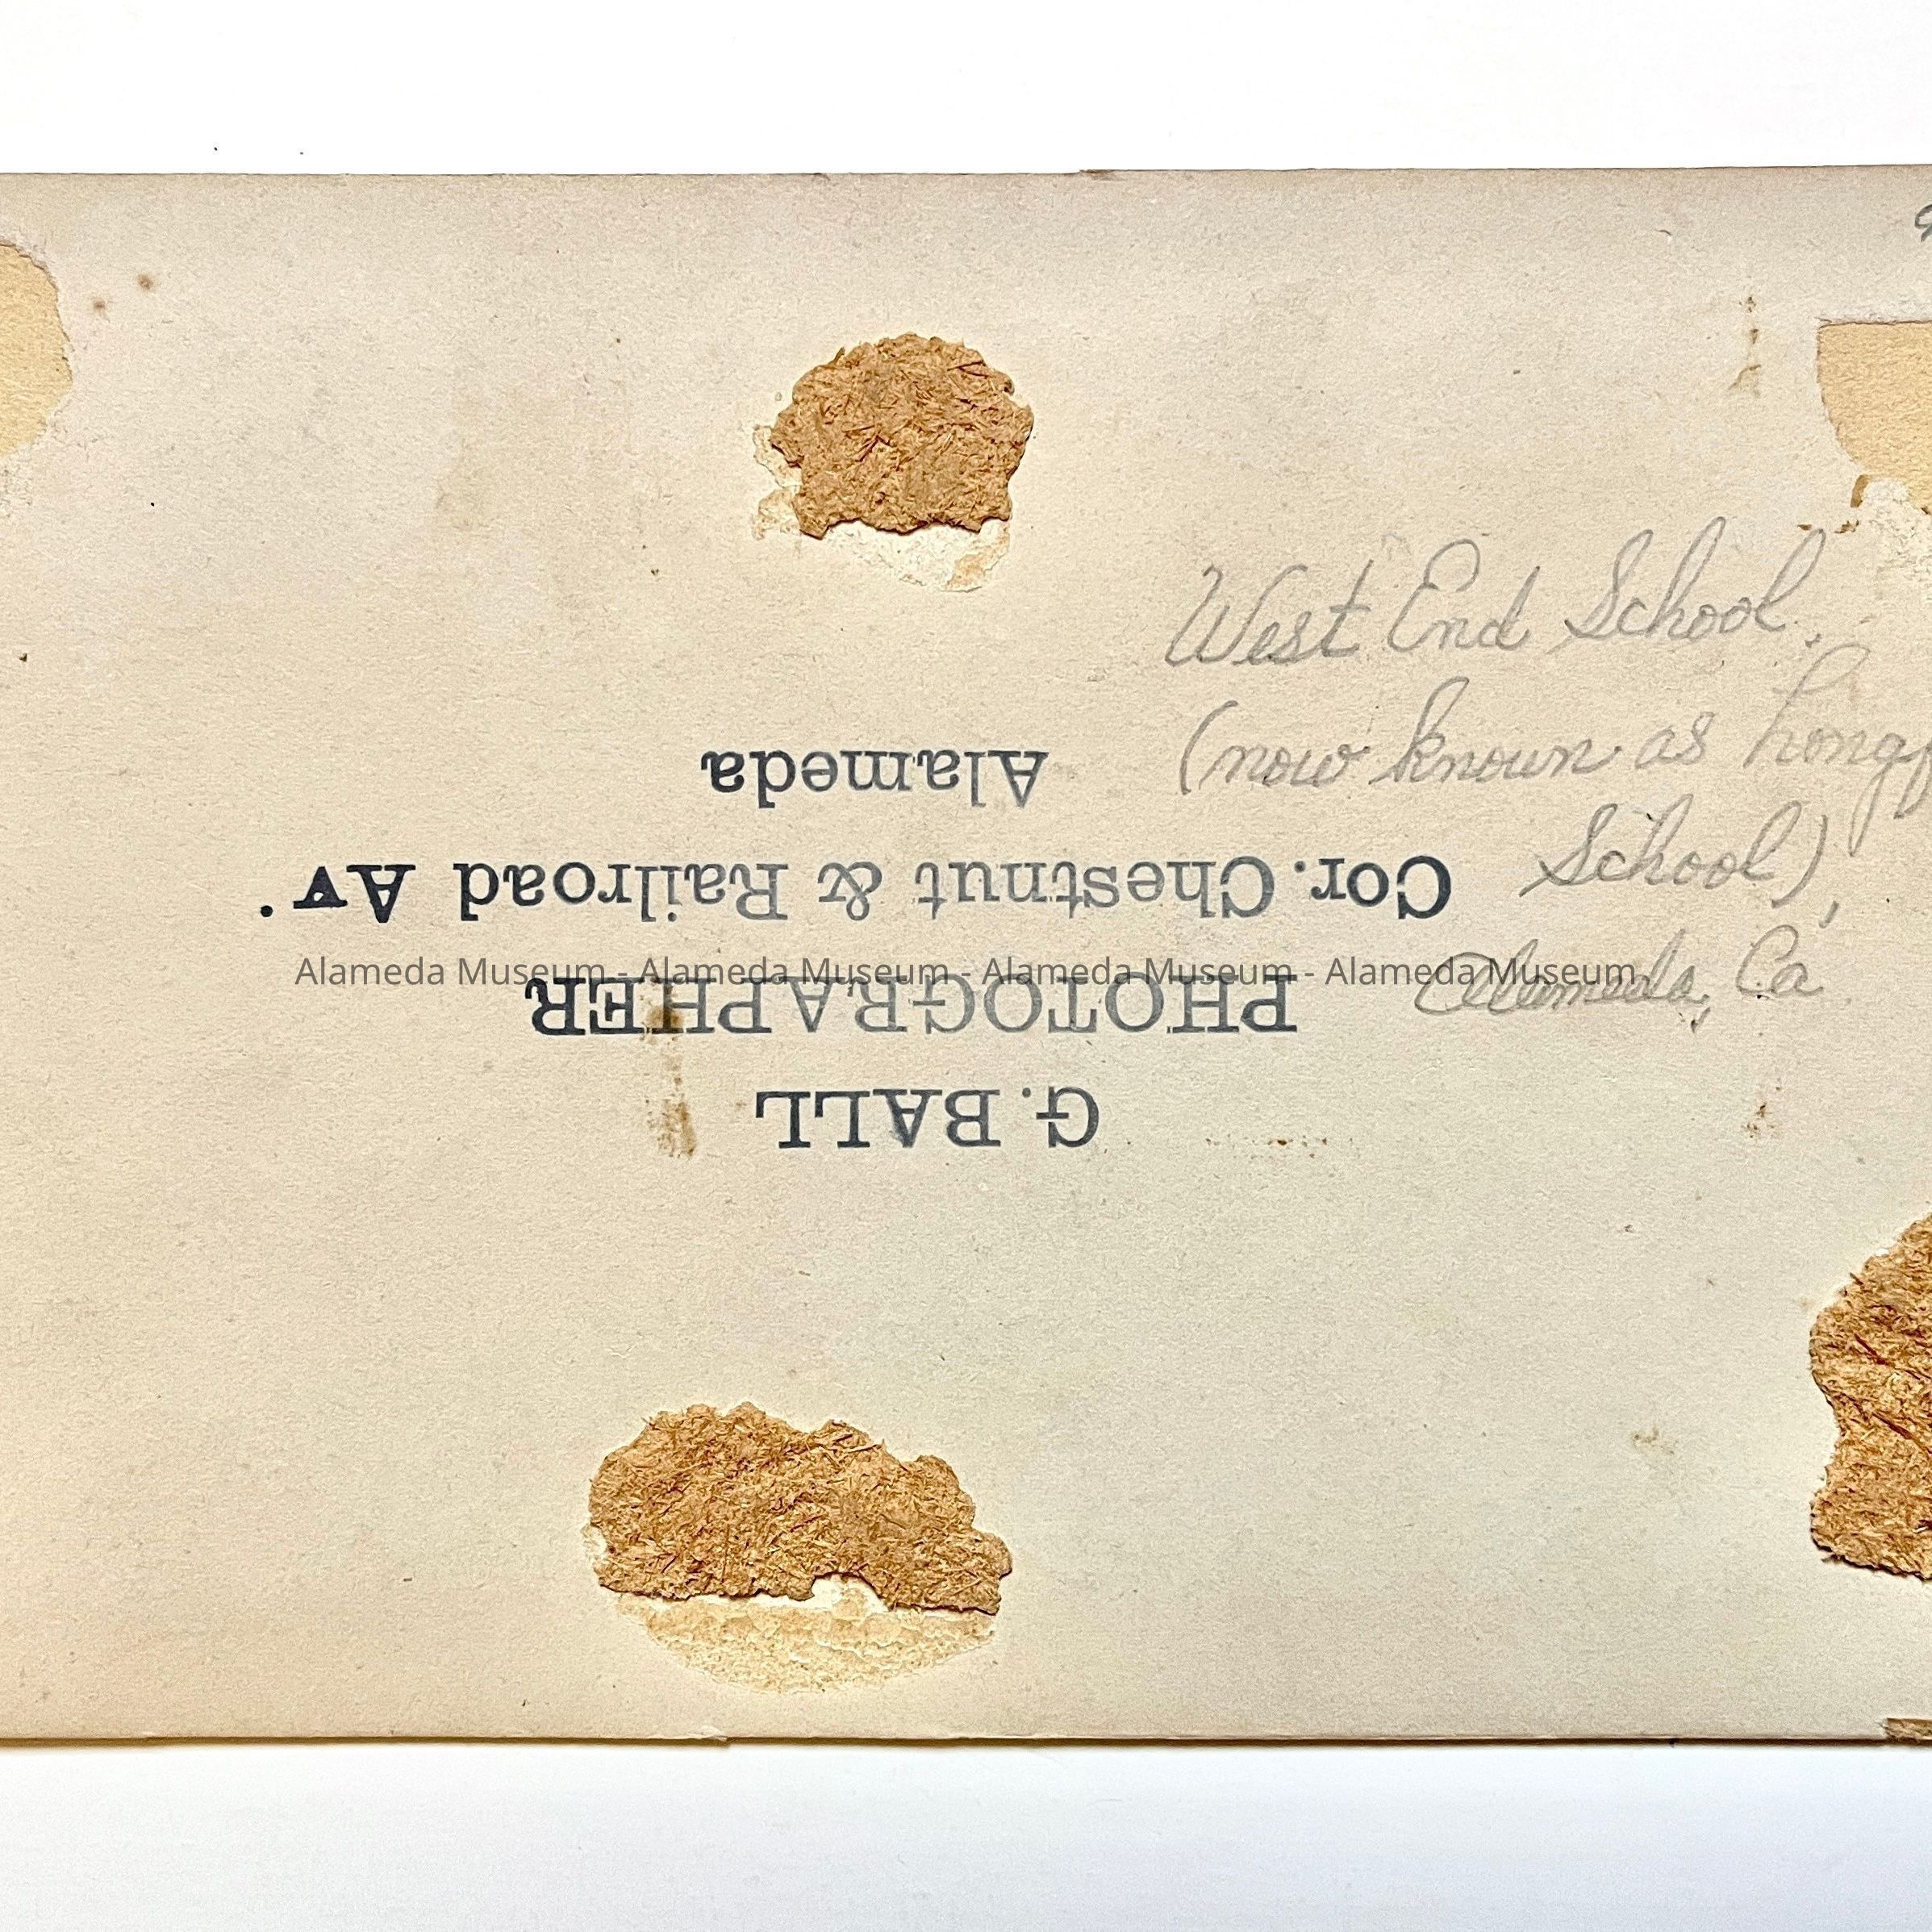 West End School.
(now known as Longf
School),
Alameda, Ca
G. BALL
PHOTOGRAPHER
Cor. Chestnut & Railroad Av.
Alameda
Alameda Museum - Alameda Museum - Alameda Museum - Alameda Museum